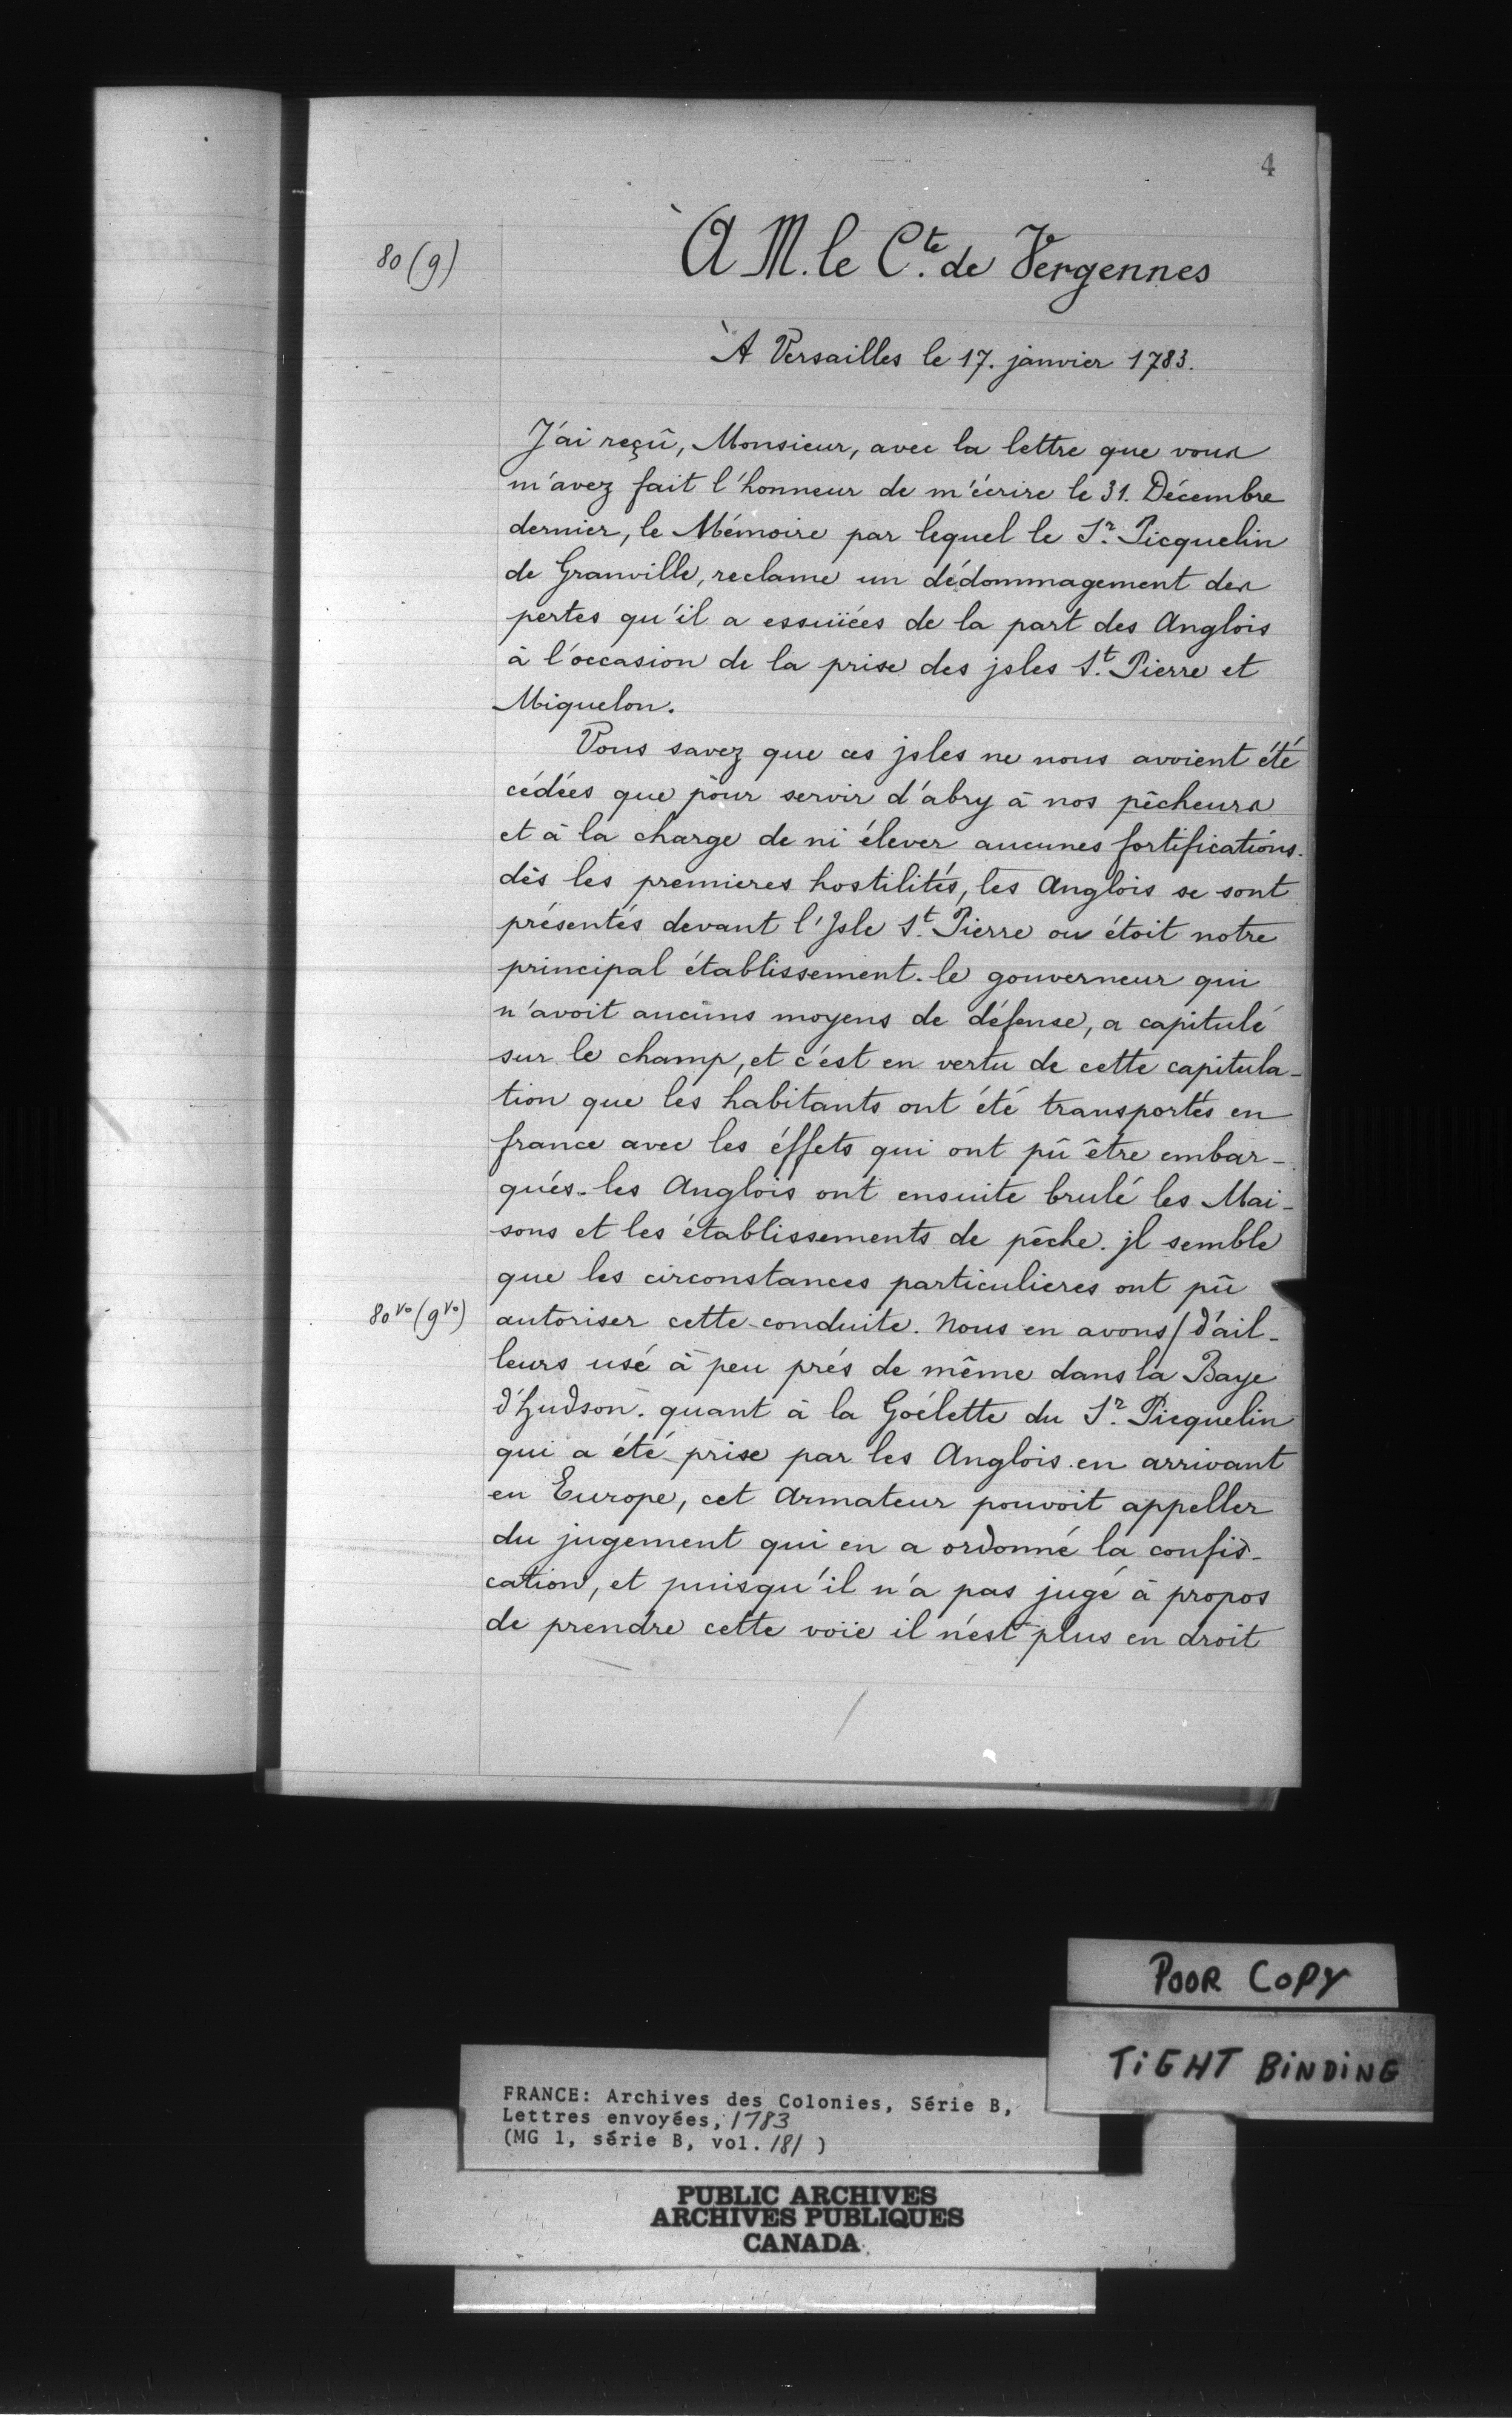 4
80 (9)
À M. le C.te de Vergennes
À Versailles le 17. janvier 1783.
J'ai reçû, Monsieur, avec la lettre que vous
m'avez fait l'honneur de m'écrire le 31. Décembre
dernier, le Mémoire par lequel le S.r Picquelin
de Granville, reclame un dédommagement des
pertes qu'il a essuïées de la part des Anglois
à l'occasion de la prise des jsles S.t Pierre et
Miquelon.
Vous savez que ces jsles ne nous avoient été
cédées que pour servir d'abry à nos pêcheurs
et à la charge de ni élever aucunes fortifications.
dès les premieres hostilités, les Anglois se sont
présentés devant l'Jsle S.t Pierre ou étoit notre
principal établissement. le gouverneur qui
n'avoit aucuns moyens de défense, a capitulé
sur le champ, et c'est en vertu de cette capitula-
tion que les habitants ont été transportés en
france avec les éffets qui ont pû être embar-
qués. les Anglois ont ensuite brulé les Mai-
sons et les établissements de pêche. jl semble
que les circonstances particulieres ont pû
80 vo (9 vo)
autoriser cette conduite. Nous en avons / d'ail-
leurs usé à peu prés de même dans la Baye
d'hudson. quant à la Goélette du S.r Picquelin
qui a été prise par les Anglois en arrivant
en Europe, cet Armateur pouvoit appeller
du jugement qui en a ordonné la confis-
cation, et puisqu'il n'a pas jugé à propos
de prendre cette voïe il n'est plus en droit
POOR COPY
TIGHT BINDING
FRANCE: Archives des Colonies, Série B,
Lettres envoyées, 1783
(MG 1, série B, vol. 181 )
PUBLIC ARCHIVES
ARCHIVES PUBLIQUES
CANADA